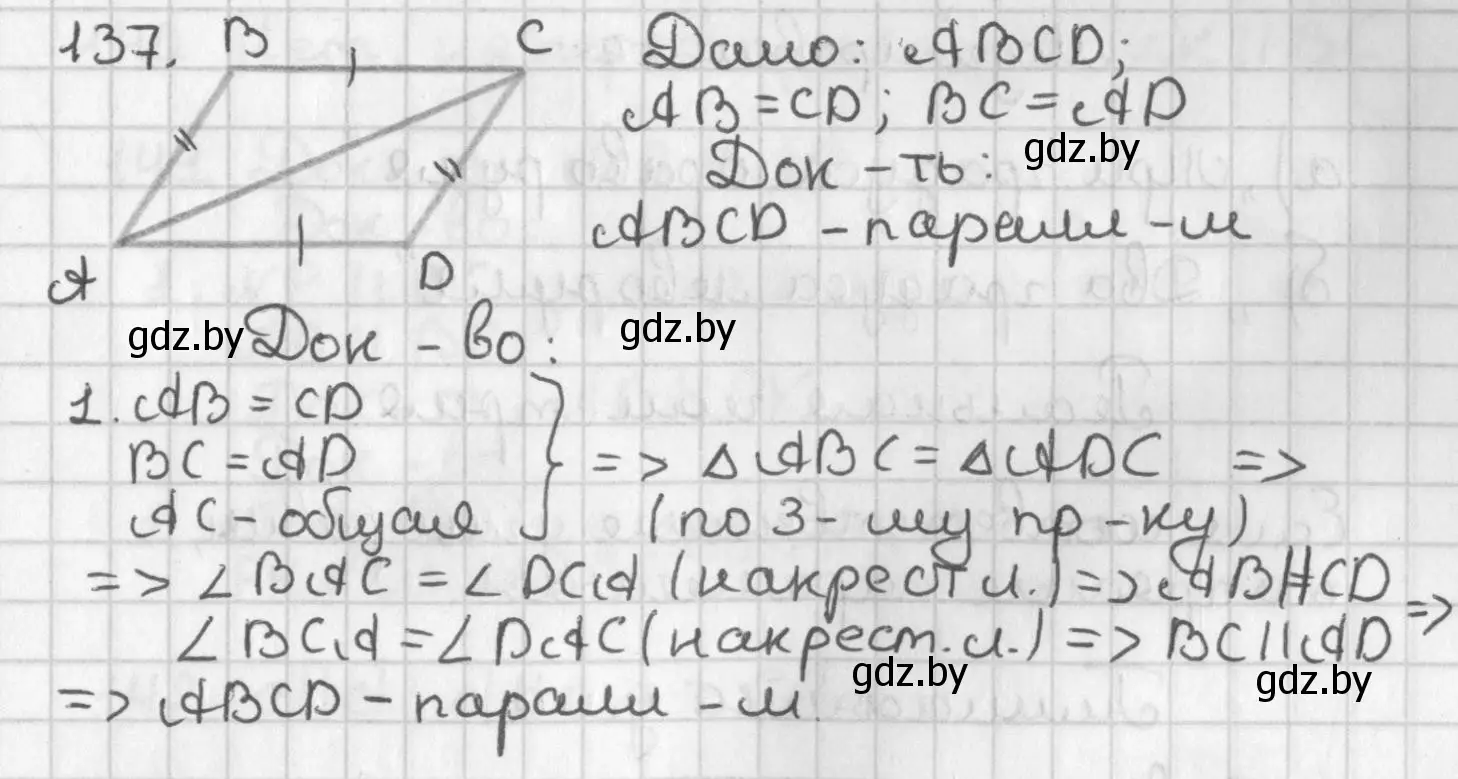 137. B C
A D
Дано: ABCD;
AB = CD; BC = AD
gdz.by
Док-ть:
ABCD - паралл-м
gdz.by Док-во: gdz.by
1. AB = CD
BC = AD
AC - общая
=> △ABC = △ADC =>
(по 3-му пр-ку)
=> ∠BAC = ∠DCA (накрест л.) => AB∦CD =>
∠BCA = ∠DAC (накрест. л.) => BC||AD
gdz.by gdz.by
=> ABCD - паралл-м.